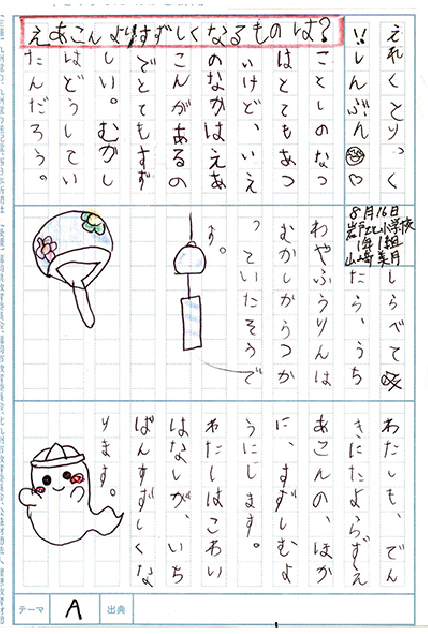 えれくとり、く
!!しんぶん
えあこんよりすずしくなるものは?
ことしのなつ
はとてもあつ
いけど、いえ
のなかはえあ
こんがあるの
でとてもすず
しい。むかし
はどうしてい
たんだろう。
8月16日
小学校
1年1組
しらべて
たら、うち
わやふうりんは
むかし
っていたそうで
す。
わたしも、でん
きにたよらずえ
あこんの、ほか
に、すずしむよ
うにします。
わたしはこわい
はなしが、いち
ばんすずしくな
ります。
テーマ A 出典